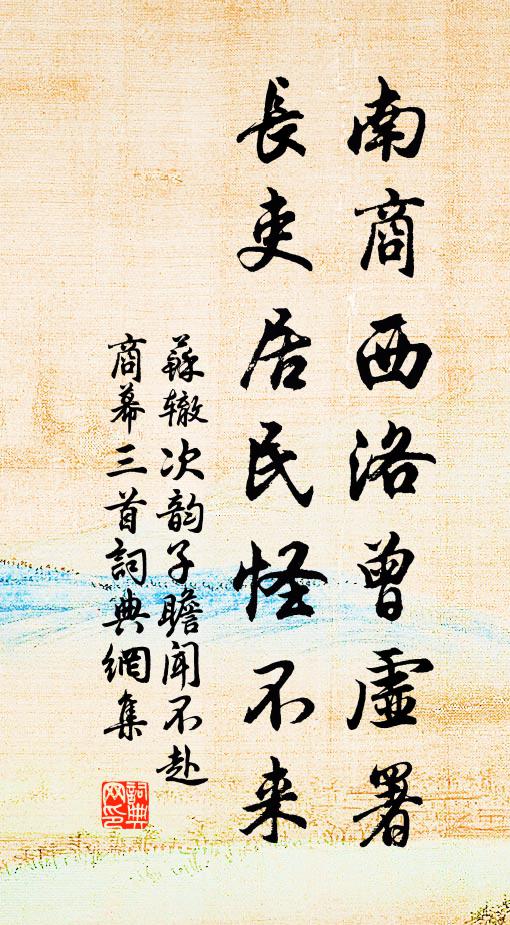 南商西洛曾虛署
長吏居民怪不来
蘇辙次韵子瞻闻不赴
商幕三首詞典網集
詞典网印